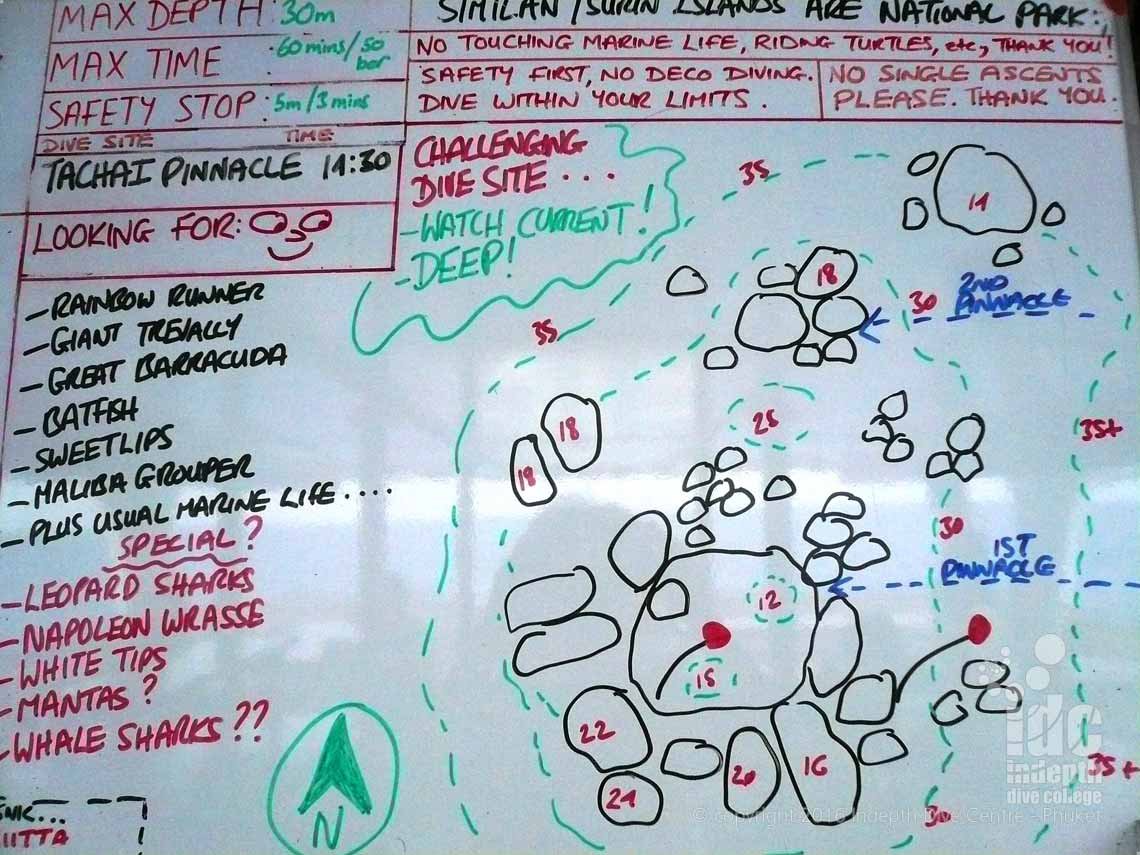 MAX DEPTH: 30m
MAX TIME :60mins/50 bar
SAFETY STOP: 5m/3mins
DIVE SITE TIME
TACHAI PINNACLE 11:30
SIMILAN/SURIN ISLANDS ARE NATIONAL PARK:
NO TOUCHING MARINE LIFE, RIDING TURTLES, etc, THANK YOU!
SAFETY FIRST, NO DECO DIVING.
DIVE WITHIN YOUR LIMITS.
NO SINGLE ASCENTS
PLEASE. THANK YOU.
LOOKING FOR:
CHALLENGING
DIVE SITE ...
- WATCH CURRENT!
- DEEP!
- RAINBOW RUNNER
- GIANT TREVALLY
- GREAT BARRACUDA
- BATFISH
- SWEETLIPS
- MALIBA GROUPER
- PLUS USUAL MARINE LIFE ....
SPECIAL?
- LEOPARD SHARKS
- NAPOLEON WRASSE
- WHITE TIPS
- MANTAS?
- WHALE SHARKS??
N
35
14
18
30
2ND
PINNACLE
35
18
18
25
35+
30
1ST
PINNACLE
12
15
22
24
20
16
35+
30
idc
indepth
dive college
© Copyright 2016 Indepth Dive Centre - Phuket